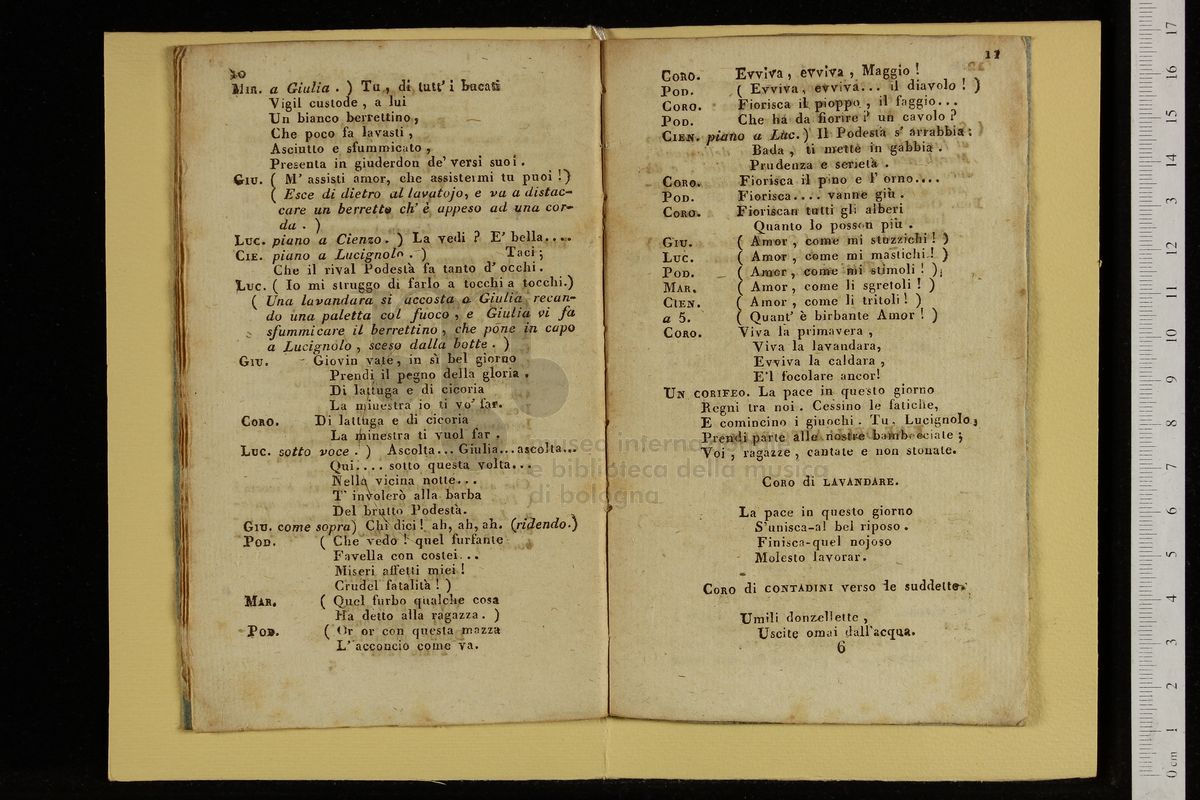 10
Mir. a Giulia . ) Tu , di tutt' i bucati
Vigil custode , a lui
Un bianco berrettino ,
Che poco fa lavasti ,
Asciutto e sfummicato ,
Presenta in giuderdon de' versi suoi .
Giu. ( M' assisti amor, che assistermi tu puoi ! )
( Esce di dietro al lavatojo, e va a distac-
care un berretto ch' è appeso ad una cor-
da . )
Luc. piano a Cienzo . ) La vedi ? E' bella....
Cie. piano a Lucignolo . ) Taci ;
Che il rival Podestà fa tanto d' occhi .
Luc. ( Io mi struggo di farlo a tocchi a tocchi.)
( Una lavandara si accosta a Giulia recan-
do una paletta col fuoco , e Giulia vi fa
sfummicare il berrettino , che pone in capo
a Lucignolo , sceso dalla botte . )
Giu. Giovin vate, in sì bel giorno
Prendi il pegno della gloria .
Di lattuga e di cicoria
La minestra io ti vo' far.
Coro. Di lattuga e di cicoria
La minestra ti vuol far .
Luc. sotto voce . ) Ascolta... Giulia...ascolta...
Qui.... sotto questa volta...
Nella vicina notte...
T' involerò alla barba
Del brutto Podestà.
Giu. come sopra) Chì dici ! ah, ah, ah. (ridendo.)
Pod. ( Che vedo ! quel furfante
Favella con costei...
Miseri affetti miei !
Crudel fatalità ! )
Mar. ( Quel furbo qualche cosa
Ha detto alla ragazza . )
Pod. ( Or or con questa mazza
L' acconcio come va.
11
Coro. Evviva , evviva , Maggio !
Pod. ( Evviva, evviva... il diavolo ! )
Coro. Fiorisca il pioppo , il faggio...
Pod. Che ha da fiorire ? un cavolo ?
Cien. piano a Luc.) Il Podestà s' arrabbia ;
Bada , ti mette in gabbia .
Prudenza e serietà .
Coro. Fiorisca il pino e l' orno....
Pod. Fiorisca.... vanne giù .
Coro. Fioriscan tutti gli alberi
Quanto lo posson più .
Giu. ( Amor , come mi stuzzichi ! )
Luc. ( Amor , come mi mastichi ! )
Pod. ( Amor , come mi stimoli ! )
Mar. ( Amor , come li sgretoli ! )
Cien. ( Amor , come li tritoli ! )
a 5. ( Quant' è birbante Amor ! )
Coro. Viva la primavera ,
Viva la lavandara,
Evviva la caldara ,
E'l focolare ancor!
Un corifeo. La pace in questo giorno
Regni tra noi . Cessino le fatiche,
E comincino i giuochi . Tu , Lucignolo,
Prendi parte alle nostre bambocciate ;
Voi , ragazze , cantate e non stonate.
Coro di lavandare.
La pace in questo giorno
S'unisca-al bel riposo .
Finisca-quel nojoso
Molesto lavorar.
Coro di contadini verso le suddette.
Umili donzellette ,
Uscite omai dall'acqua.
6
museo internazionale
e biblioteca della musica
di bologna
0 cm 1 2 3 4 5 6 7 8 9 10 11 12 13 14 15 16 17